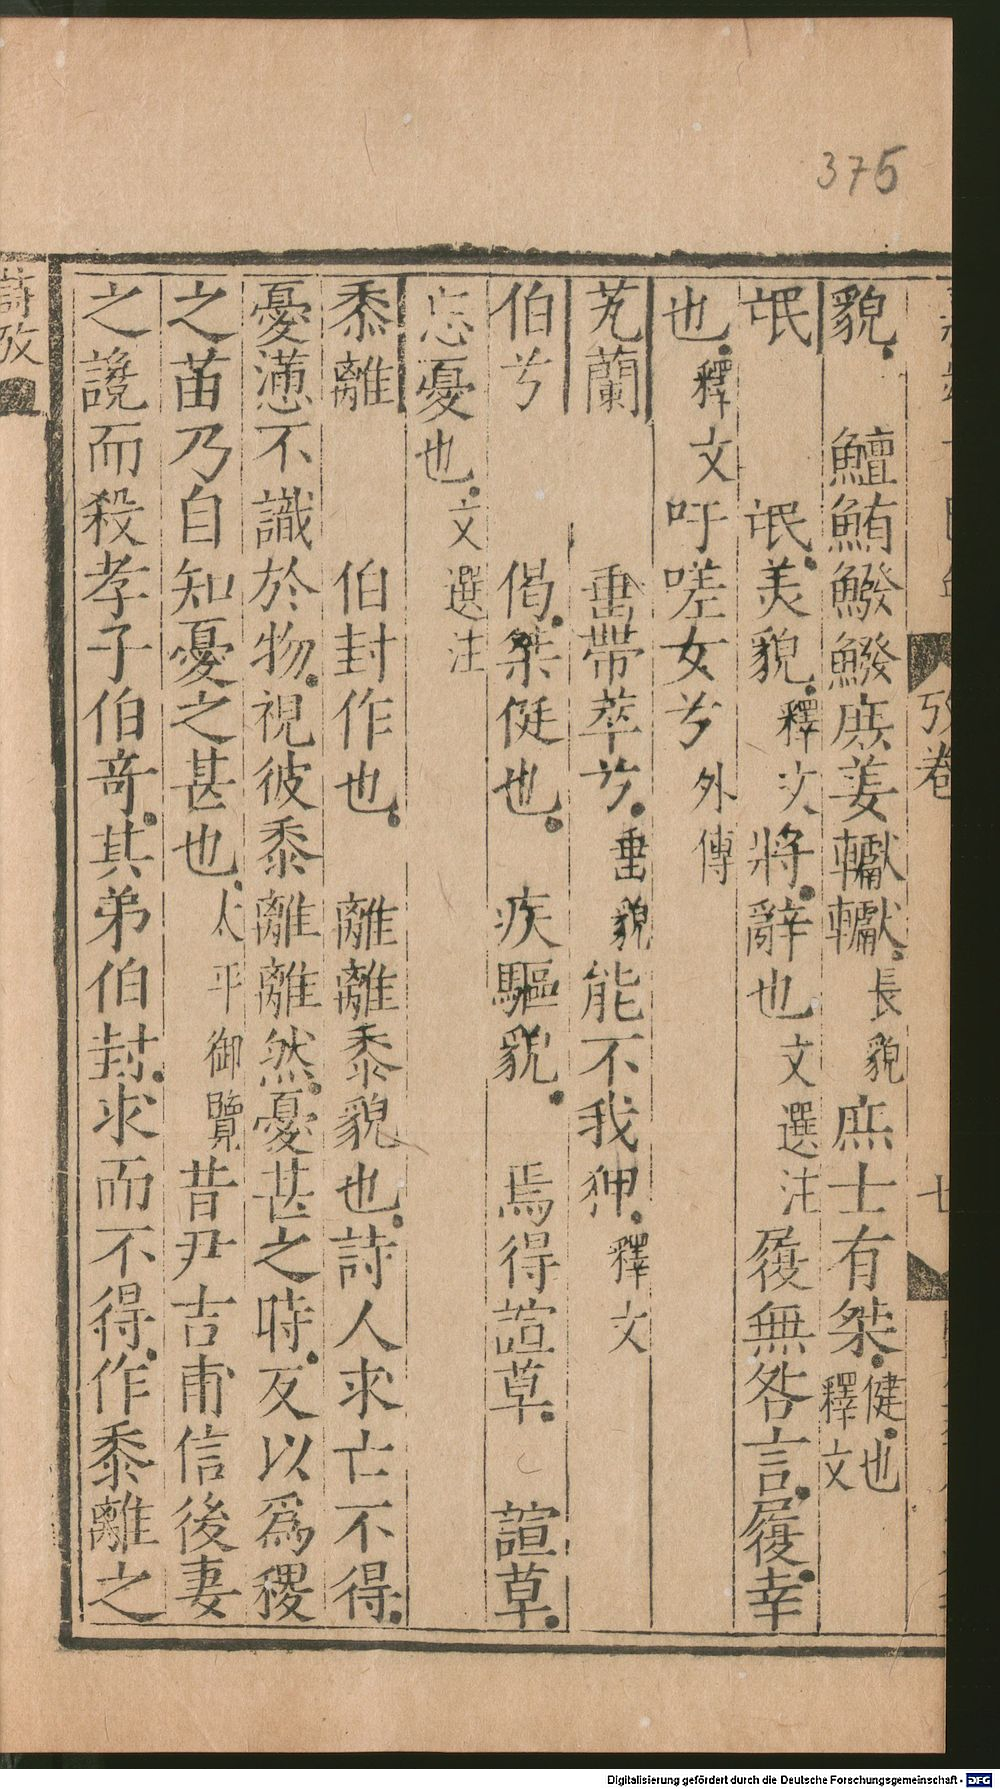 375
貌 鱣鮪鱍鱍庶姜巘巘長貌庶士有桀健也釋文
氓 氓美貌釋文將辭也文選注履無咎言履幸
也釋文吁嗟女兮外傳
芄蘭 垂帶萃兮垂貌能不我狎釋文
伯兮 偈桀侹也 疾驅貌 焉得諠草 諠草
忘憂也文選注
黍離 伯封作也 離離黍貌也詩人求亡不得
憂懣不識於物視彼黍離離然憂甚之時反以爲稷
之苗乃自知憂之甚也太平御覽昔尹吉甫信後妻
之讒而殺孝子伯奇其弟伯封求而不得作黍離之
詩攷
Digitalisierung gefördert durch die Deutsche Forschungsgemeinschaft - DFG